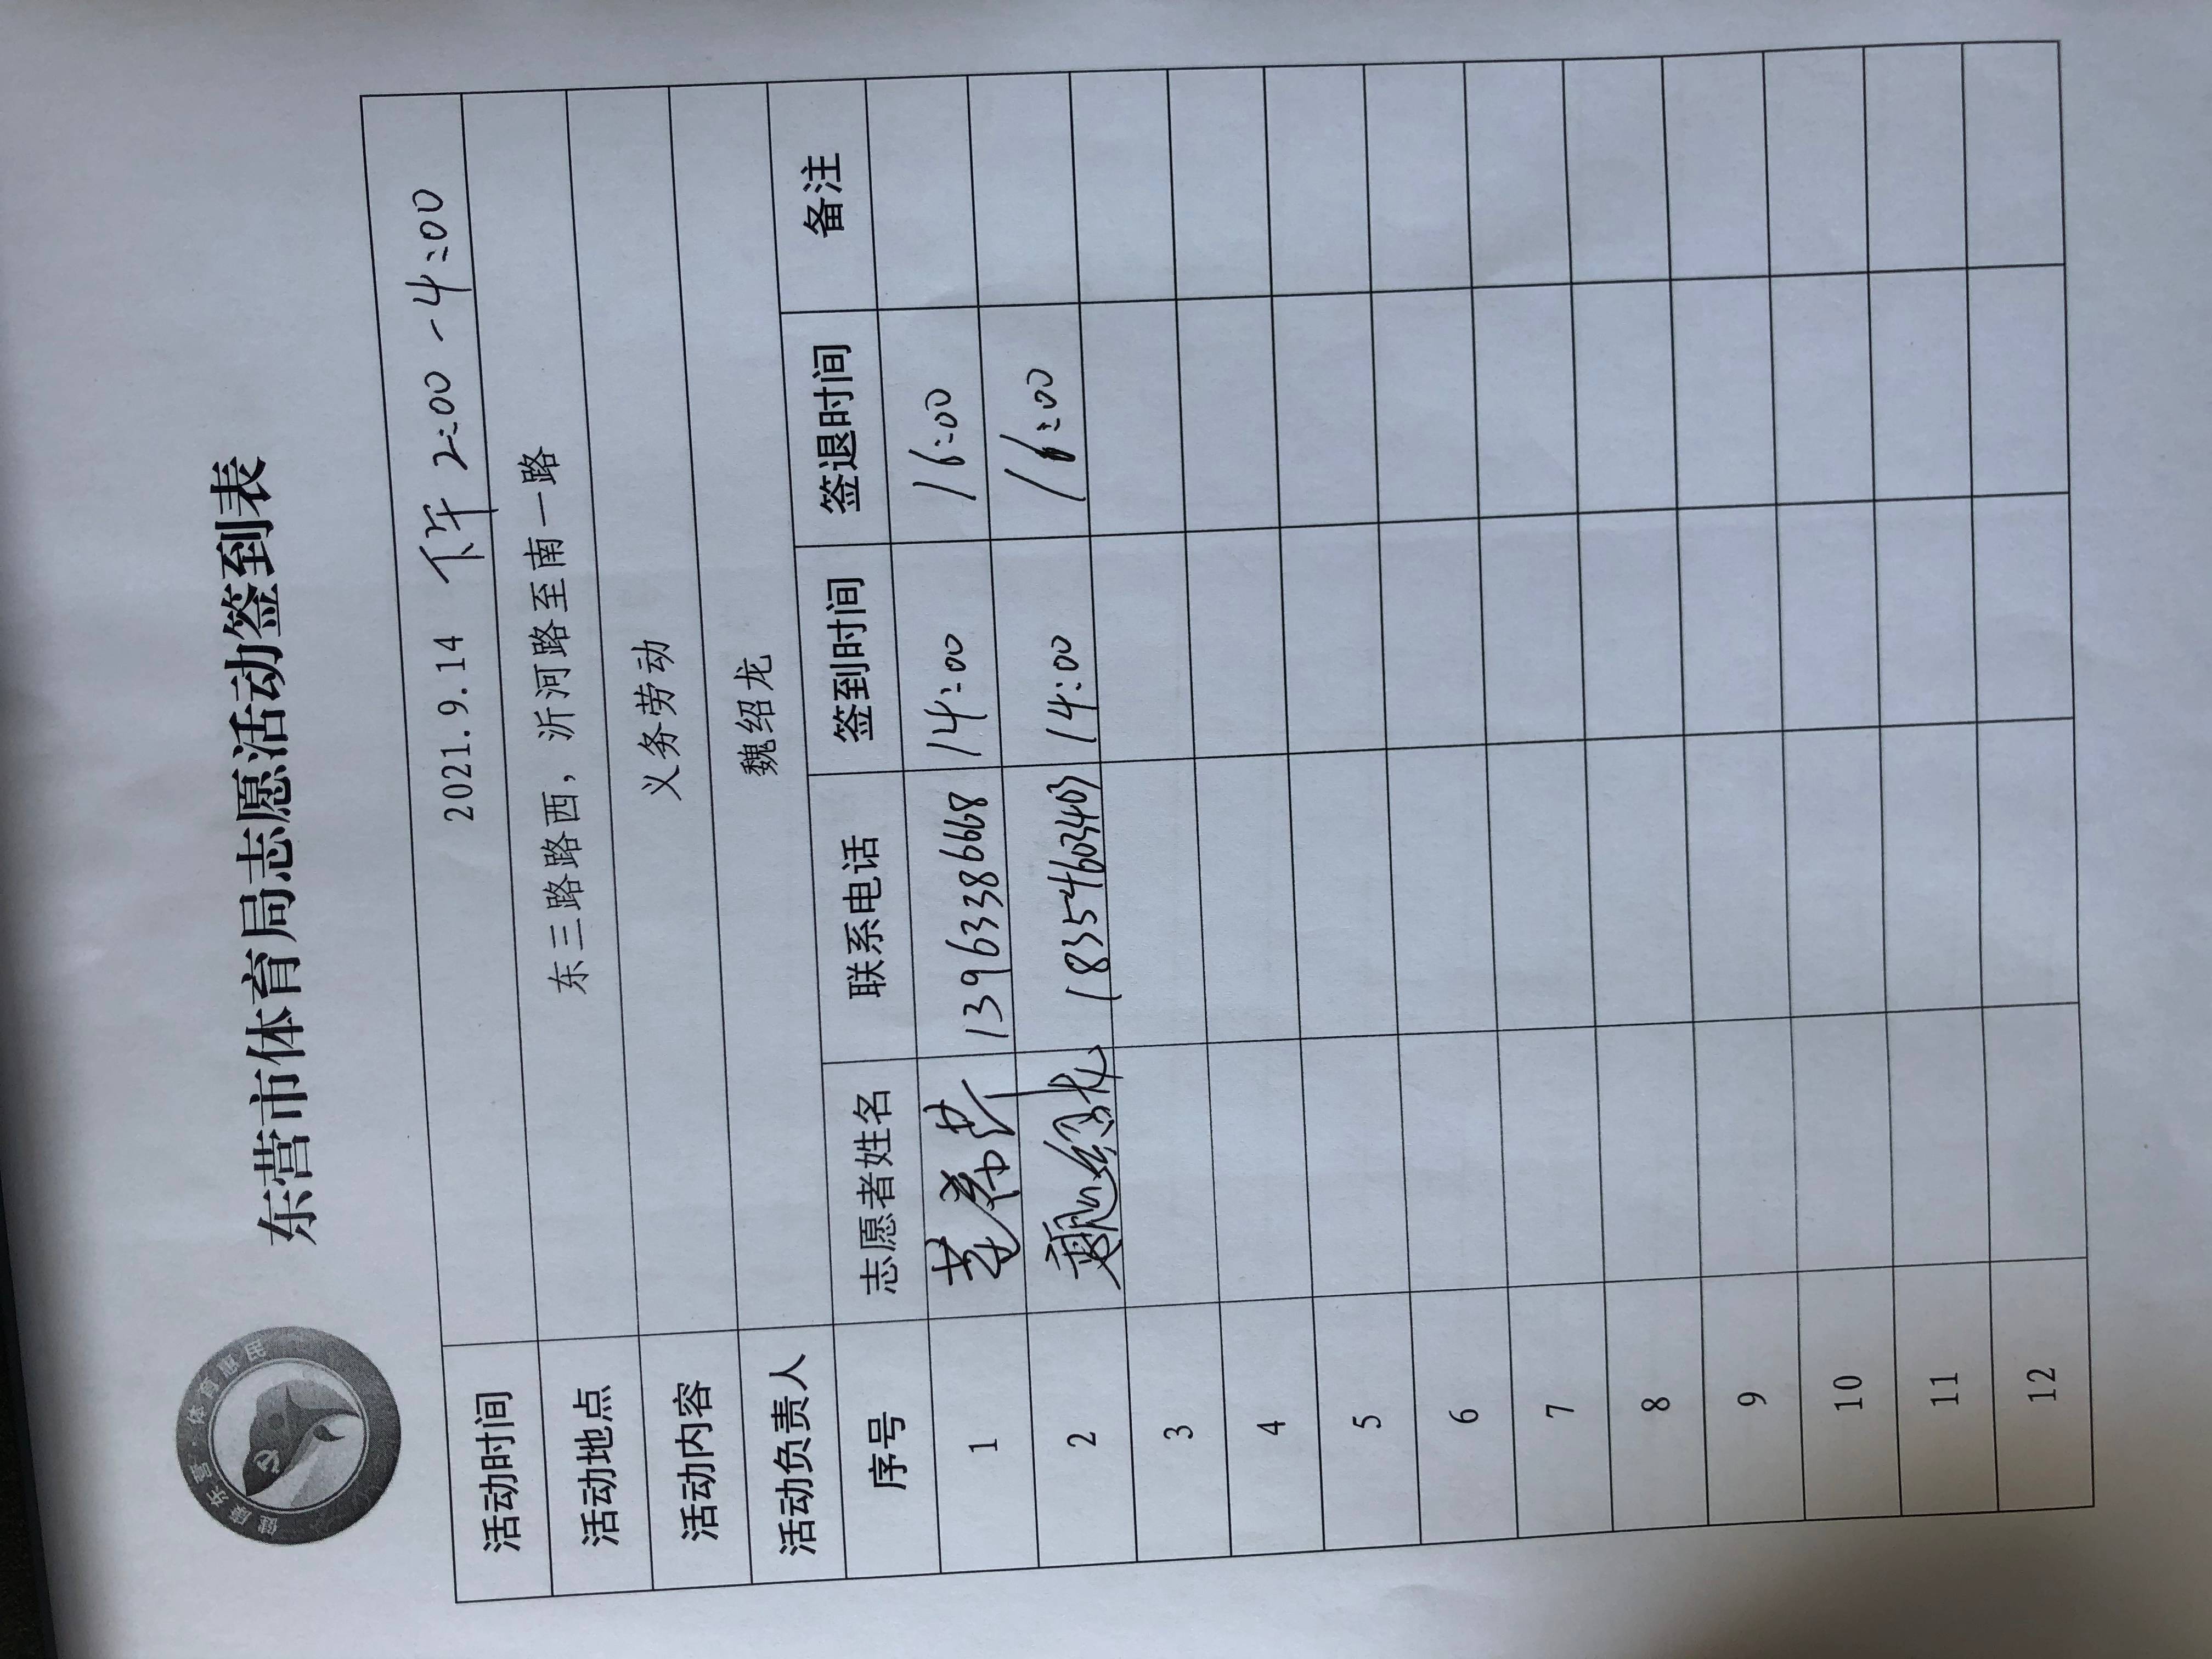 健康东营·体育惠民
东营市体育局志愿活动签到表
活动时间 2021.9.14 下午 2:00-4:00
活动地点 东三路路西，沂河路至南一路
活动内容 义务劳动
活动负责人 魏绍龙
序号 志愿者姓名 联系电话 签到时间 签退时间 备注
1 13963386668 14:00 16:00
2 魏绍龙 18354603403 14:00 16:00
3
4
5
6
7
8
9
10
11
12